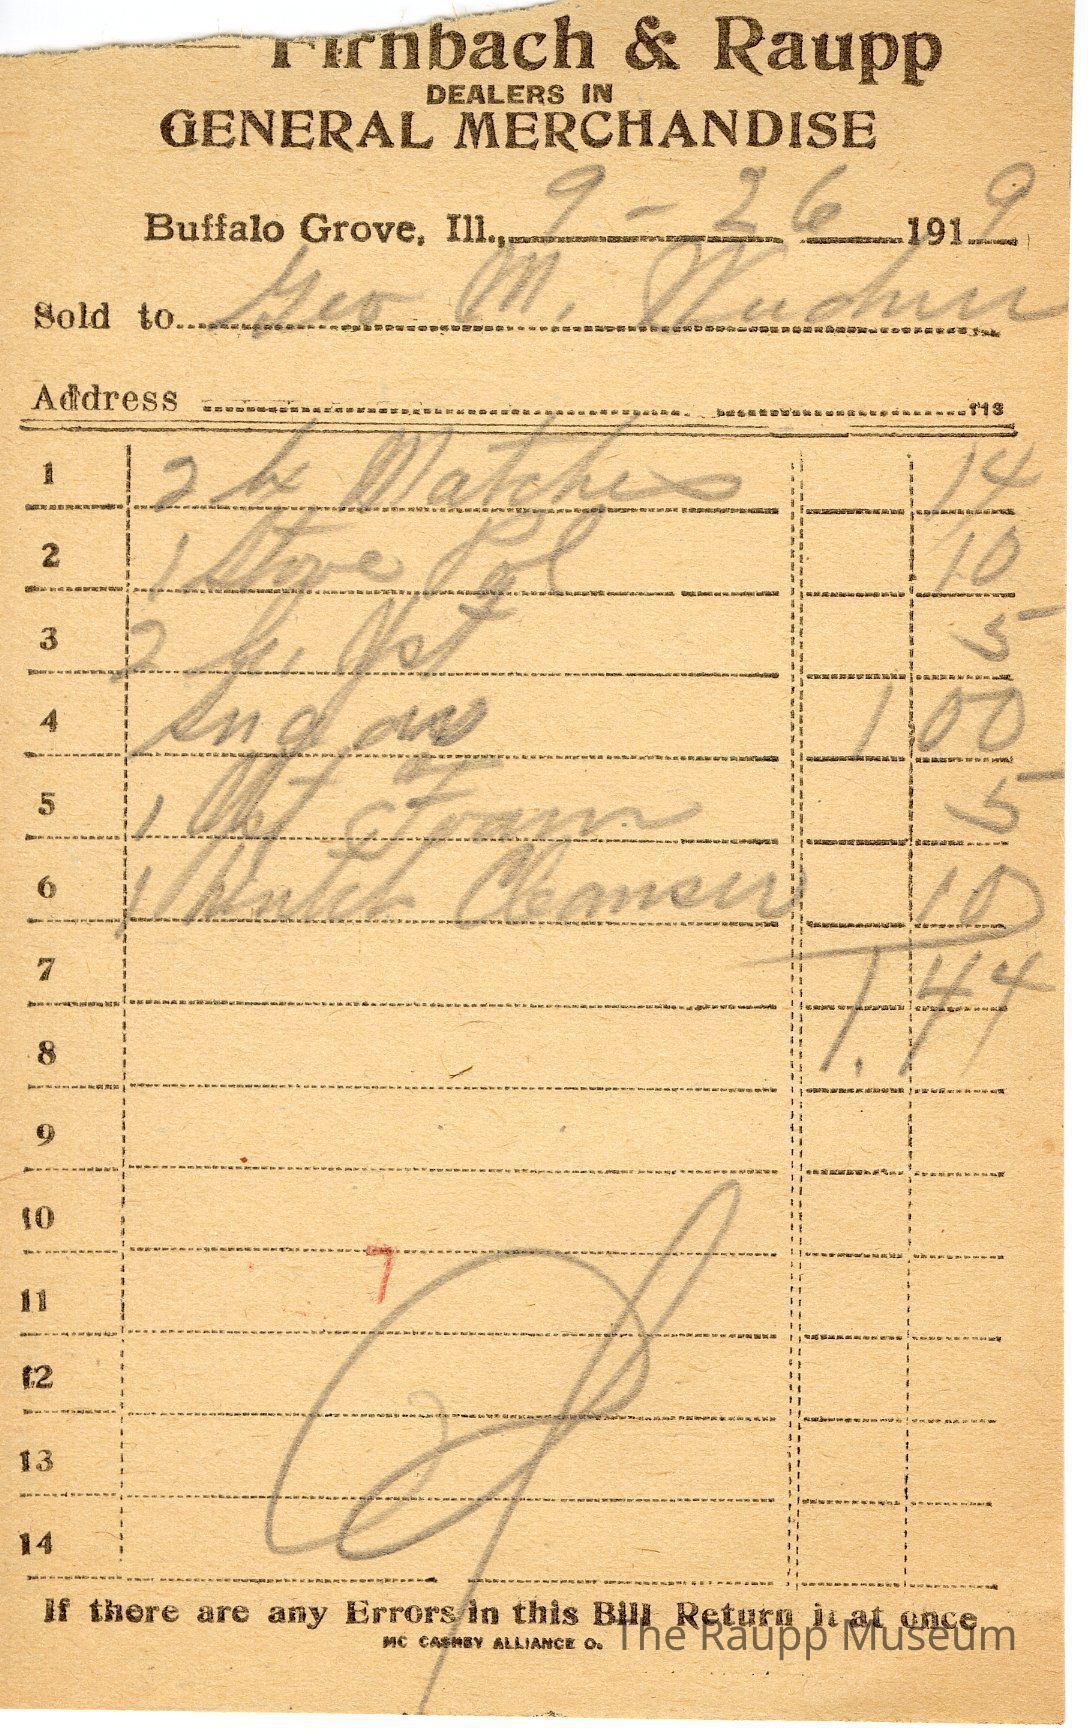 Firnbach & Raupp
DEALERS IN
GENERAL MERCHANDISE
Buffalo Grove, Ill., 9 - 26 1919
Sold to Geo M.
Address 113
1 2 bx Matches 14
2 1 Stove Pol 10
3 2 Yst 5
4 Sugar 1 00
5 1 5
6 1 Cleanser 10
7 1.44
8
9
10
7
11
12
13
14
If there are any Errors in this Bill Return it at once
MC CASKEY ALLIANCE O.
The Raupp Museum